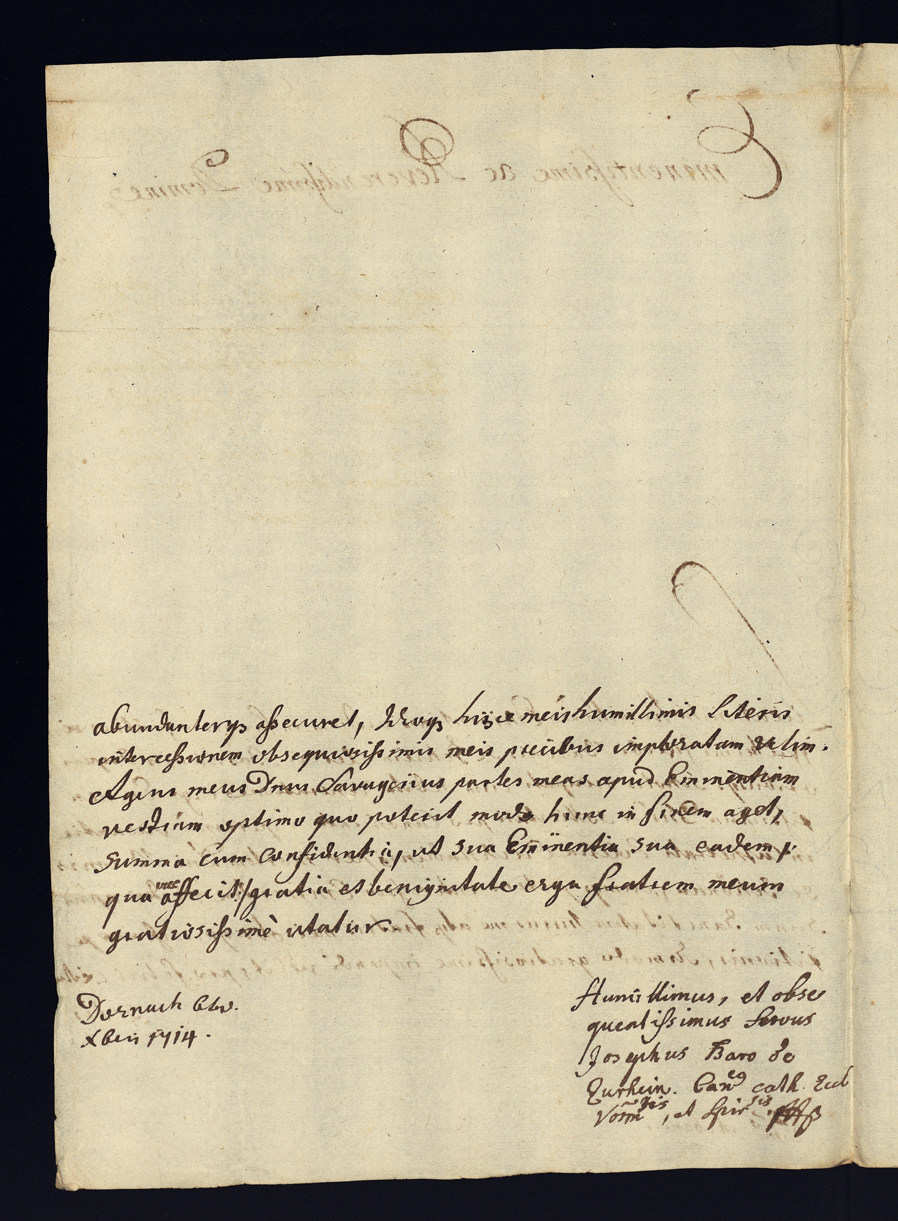 abundanterq₃ assecuret, Idroq₃ hisce meis humillimis literis
intercessionem obsequiosissimis meis precibus imploratam velim.
Agens meus Dnus Savageius partes meas apud Eminentiam
vestram optimo quo poterit modo hunc in finem aget,
summa cum confidentia, ut sua Eminentia sua eadem,
qua me affecit, gratia et benignitate erga fratrem meum
gratiosissimè utatur.
Dornach 6tv.
Xbris 1714.
Humillimus, et obse
quentissimus servus
Josephus Baro de
Zurhein. Can. cath. Eccl
Vorm, et Spir